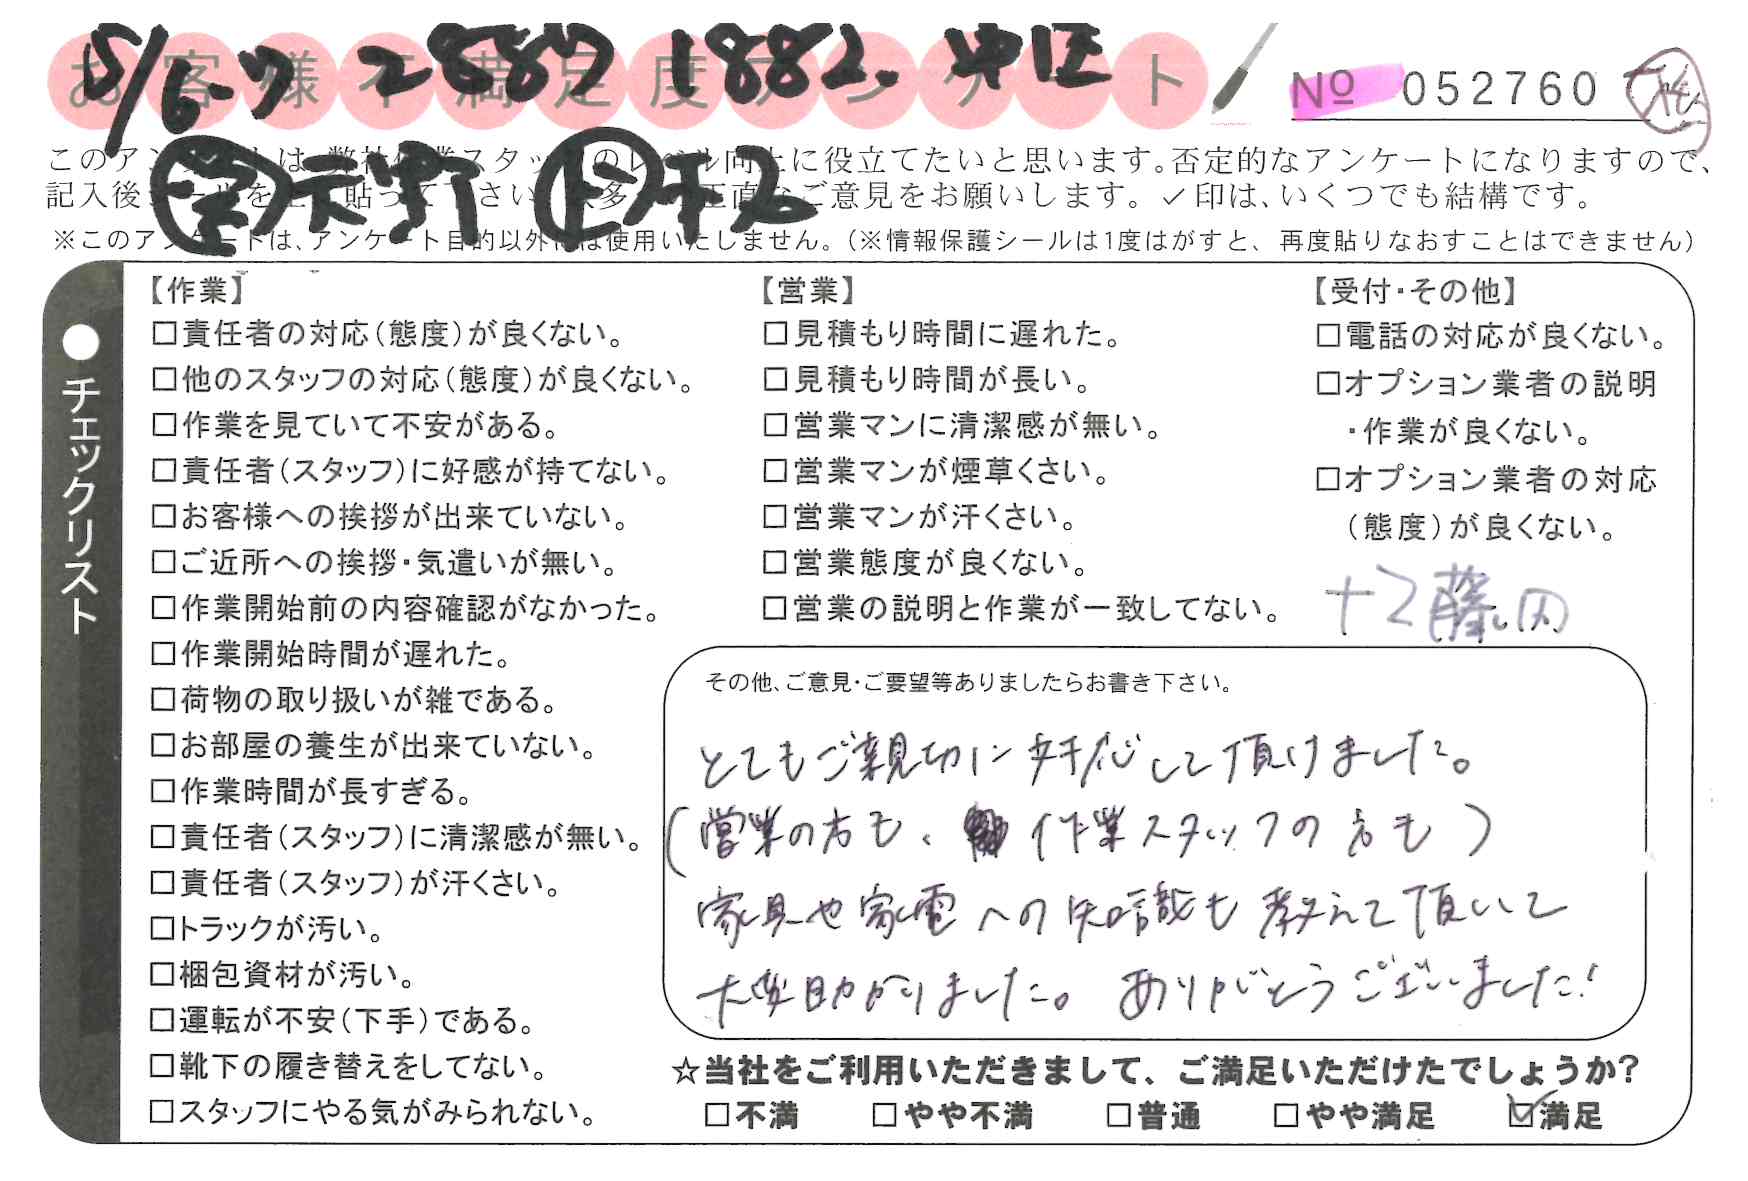 5/6-7 2887 1882. 中区
お客様不満足度アンケート
№ 052760
このアンケートは、弊社作業スタッフのレベル向上に役立てたいと思います。否定的なアンケートになりますので、
記入後シールを上に貼って下さい。数多くの正直なご意見をお願いします。✓印は、いくつでも結構です。
※このアンケートは、アンケート目的以外には使用いたしません。(※情報保護シールは1度はがすと、再度貼りなおすことはできません)
●チェックリスト
【作業】
□責任者の対応(態度)が良くない。
□他のスタッフの対応(態度)が良くない。
□作業を見ていて不安がある。
□責任者(スタッフ)に好感が持てない。
□お客様への挨拶が出来ていない。
□ご近所への挨拶・気遣いが無い。
□作業開始前の内容確認がなかった。
□作業開始時間が遅れた。
□荷物の取り扱いが雑である。
□お部屋の養生が出来ていない。
□作業時間が長すぎる。
□責任者(スタッフ)に清潔感が無い。
□責任者(スタッフ)が汗くさい。
□トラックが汚い。
□梱包資材が汚い。
□運転が不安(下手)である。
□靴下の履き替えをしてない。
□スタッフにやる気がみられない。
【営業】
□見積もり時間に遅れた。
□見積もり時間が長い。
□営業マンに清潔感が無い。
□営業マンが煙草くさい。
□営業マンが汗くさい。
□営業態度が良くない。
□営業の説明と作業が一致してない。
【受付・その他】
□電話の対応が良くない。
□オプション業者の説明
・作業が良くない。
□オプション業者の対応
(態度)が良くない。
+2 藤田
その他、ご意見・ご要望等ありましたらお書き下さい。
とてもご親切に対応して頂けました。
(営業の方も、作業スタッフの方も)
家具や家電への知識も教えて頂いて
大変助かりました。ありがとうございました!
☆当社をご利用いただきまして、ご満足いただけたでしょうか?
□不満 □やや不満 □普通 □やや満足 ☑満足